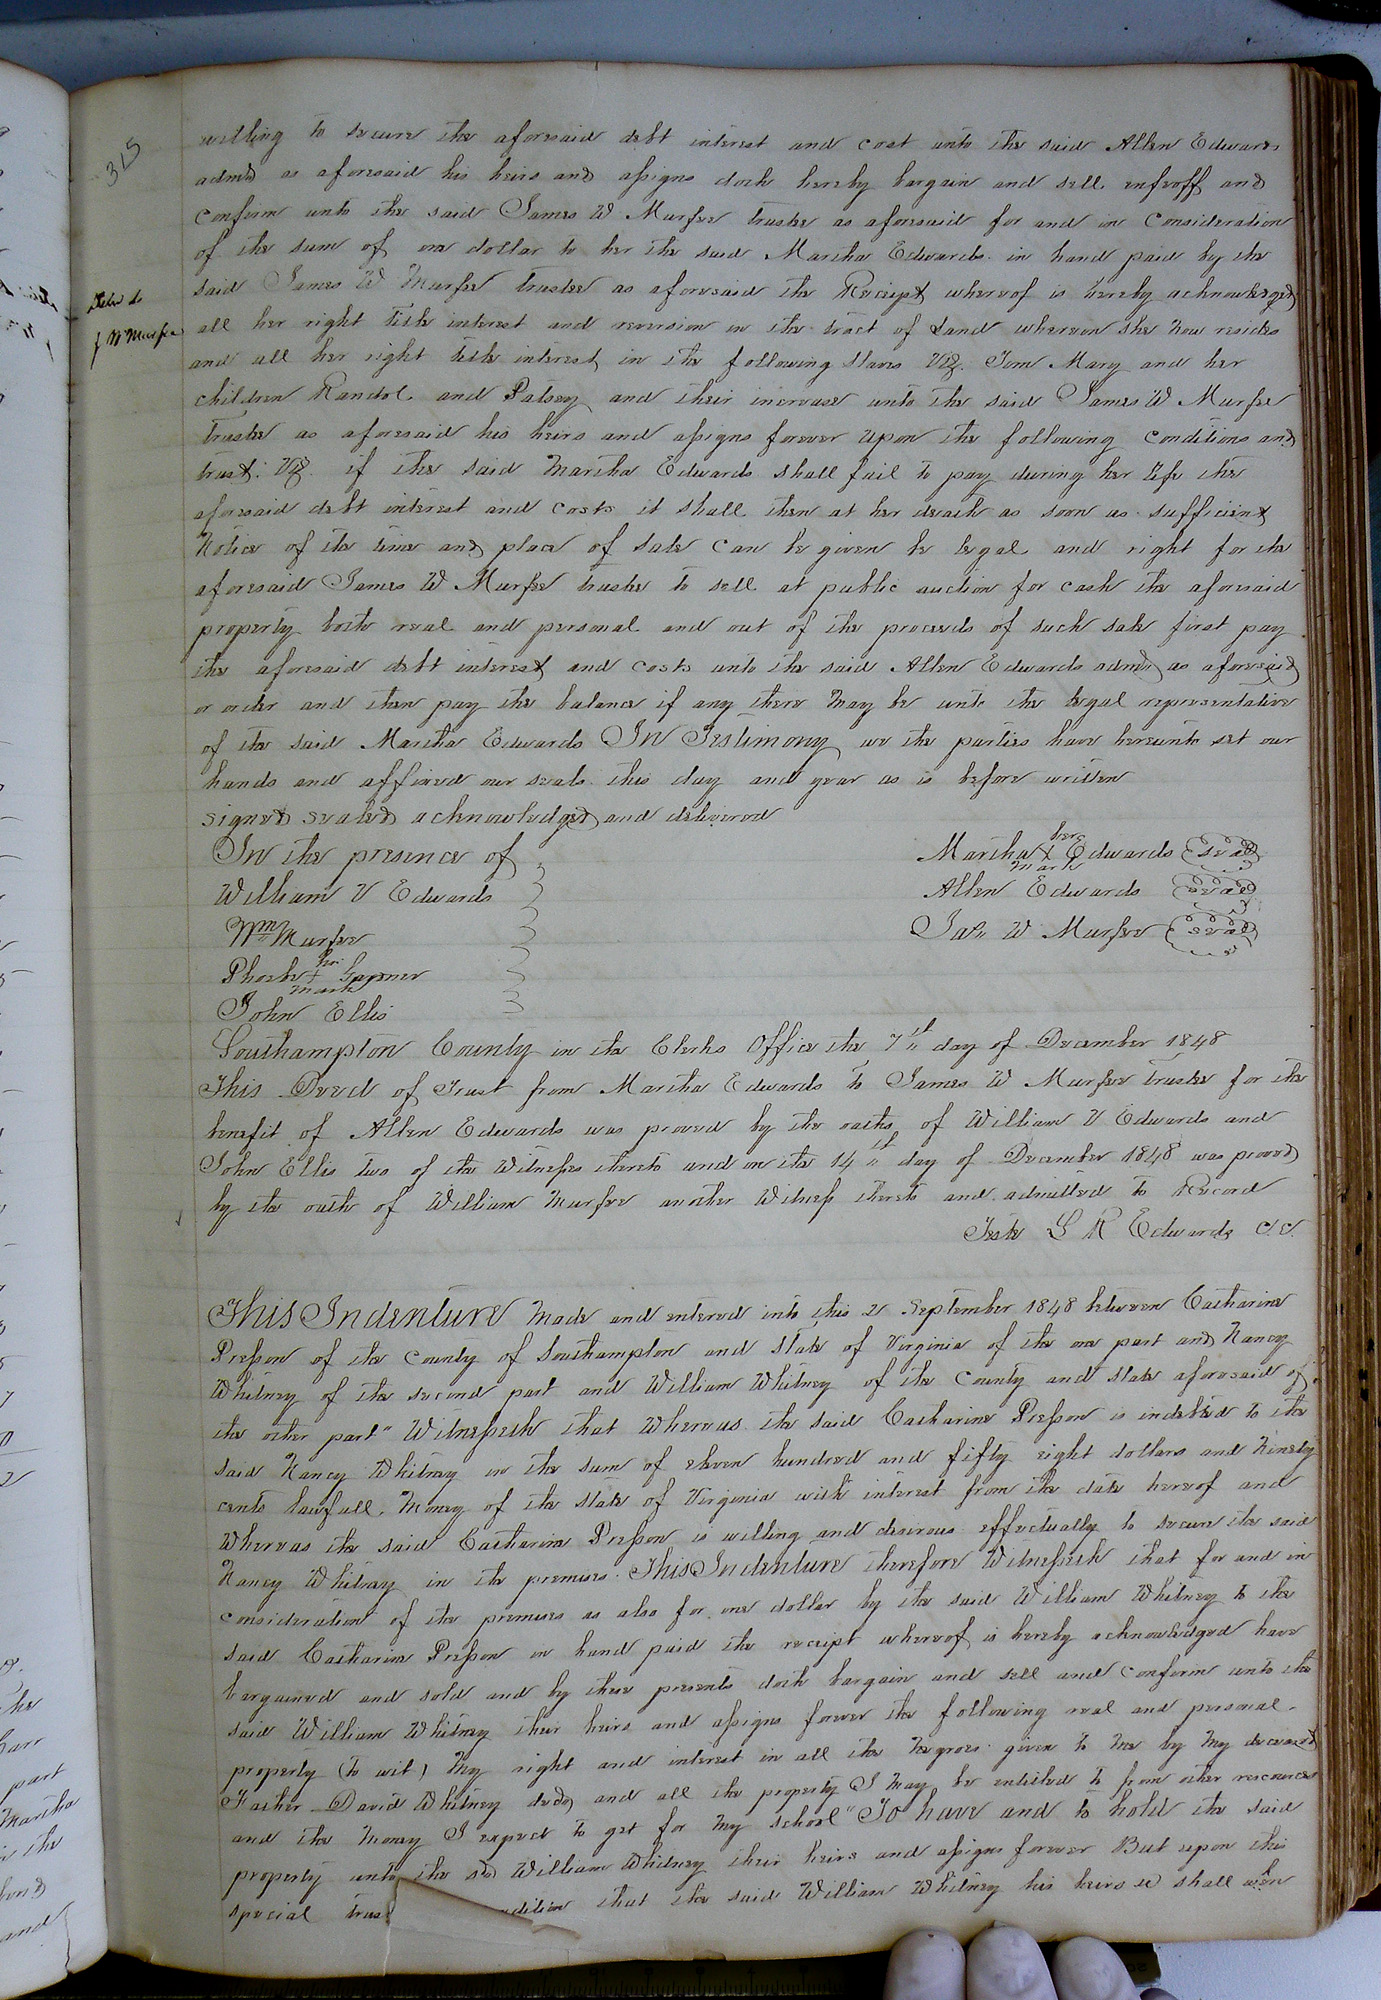 315
willing to secure the aforesaid debt interest and cost unto the said Allen Edwards
admr as aforesaid his heirs and assigns doth hereby bargain and sell enfeoff and
confirm unto the said James W Murfee trustee as aforesaid for and in consideration
of the sum of one dollar to her the said Martha Edwards in hand paid by the
said James W Murfee trustee as aforesaid the Receipt whereof is hereby acknowledged
Deld to
J W Murfee
all her right title interest and reversion in the tract of Land whereon she now resides
and all her right title interest in the following slaves Viz. Tom Mary and her
children Randol and Patsey and their increase unto the said James W Murfee
trustee as aforesaid his heirs and assigns forever upon the following conditions and
trust: Viz. if the said Martha Edwards shall fail to pay during her life the
aforesaid debt interest and costs it shall then at her death as soon as sufficient
Notice of the time and place of sale can be given be legal and right for the
aforesaid James W Murfee trustee to sell at public auction for cash the aforesaid
property both real and personal and out of the proceeds of such sale first pay
the aforesaid debt interest and costs unto the said Allen Edwards admr as aforesaid
or order and then pay the balance if any there may be unto the legal representative
of the said Martha Edwards In Testimony we the parties have hereunto set our
hands and affixed our seals this day and year as is before written
signed sealed acknowledged and delivered
In the presence of
William V Edwards
Wm Murfee
Phoebe + her mark
John Ellis
Martha X her mark Edwards seal
Allen Edwards seal
Jas W Murfee seal
Southampton County in the Clerks Office the 7th day of December 1848
This Deed of Trust from Martha Edwards to James W Murfee trustee for the
benefit of Allen Edwards was proved by the oaths of William V Edwards and
John Ellis two of the Witnesses thereto and on the 14th day of December 1848 was proved
by the oath of William Murfee another Witness thereto and admitted to Record
Teste L R Edwards C.C.
This Indenture Made and entered into this 2 September 1848 between Catharine
Presson of the County of Southampton and State of Virginia of the one part and Nancy
Whitney of the second part and William Whitney of the County and state aforesaid of
the other part" Witnesseth that Whereas the said Catharine Presson is indebted to the
said Nancy Whitney in the sum of eleven hundred and fifty eight dollars and Ninety
cents lawfull Money of the State of Virginia with interest from the date hereof and
Whereas the said Catharine Presson is willing and desirous effectually to secure the said
Nancy Whitney in the premises. This Indenture therefore Witnesseth that for and in
consideration of the premises as also for one dollar by the said William Whitney to the
said Catharine Presson in hand paid the receipt whereof is hereby acknowledged have
bargained and sold and by these presents doth bargain and sell and conferm unto the
said William Whitney their heirs and assigns forever the following real and personal
property (to wit) My right and interest in all the Negroes given to me by my deceased
Father David Whitney decd and all the property I may be entitled to from other resources
and the money I expect to get for my school" To have and to hold the said
property unto the sd William Whitney their heirs and assigns forever But upon this
special trust condition that the said William Whitney his heirs &c shall when